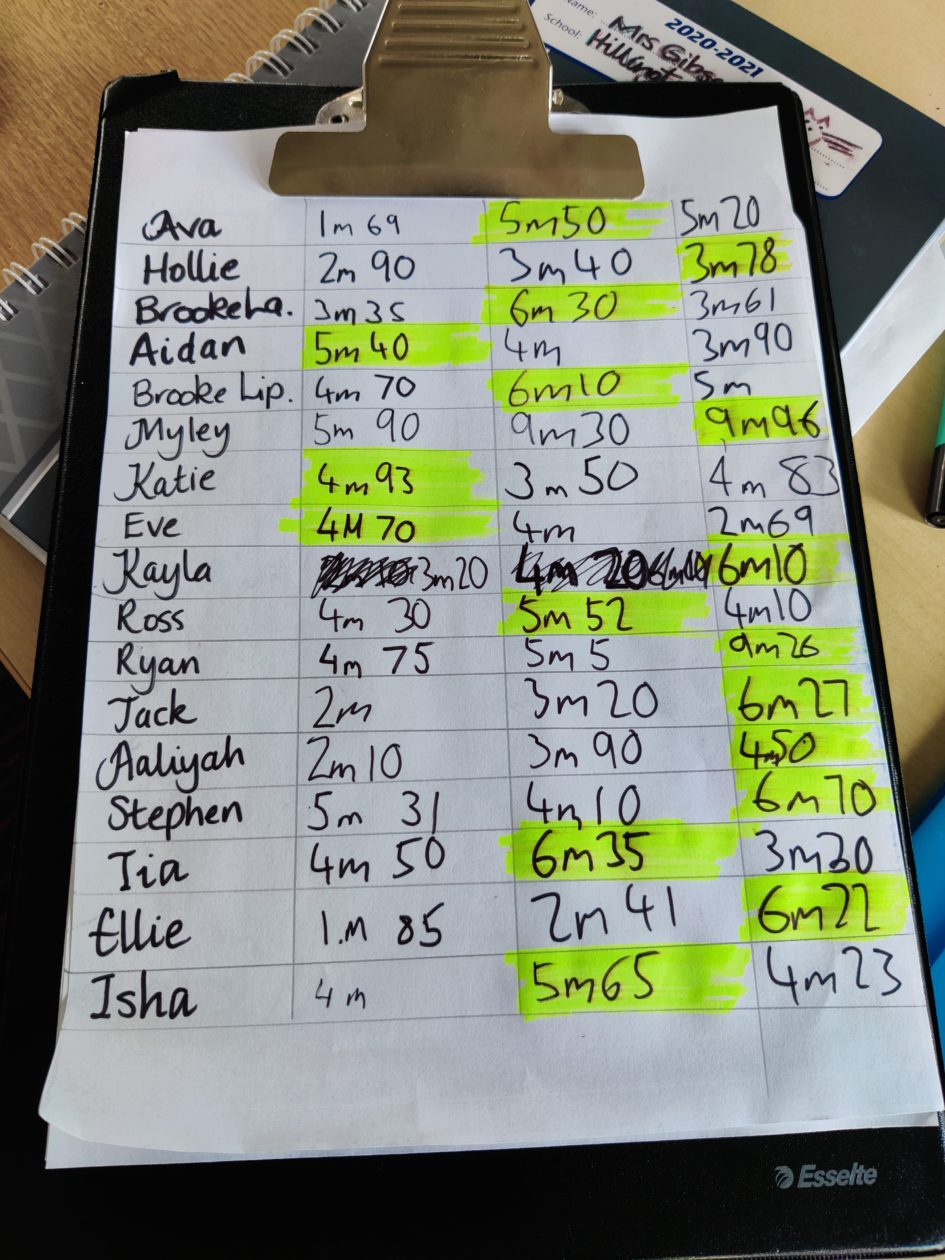 Name:
2020-2021
School:
Mrs
Ava 1m 69 5m50 5m20
Hollie 2m 90 3m 40 3m78
BrookeLa. 3m 35 6m 30 3m61
Aidan 5m 40 4m 3m90
Brooke Lip. 4m 70 6m10 5m
Myley 5m 90 9m30 9m96
Katie 4m 93 3m 50 4m 83
Eve 4M 70 4m 2m69
Kayla 3m20 6m10
Ross 4m 30 5m 52 4m10
Ryan 4m 75 5m 5 9m26
Jack 2m 3m 20 6m27
Aaliyah 2m10 3m 90 4m50
Stephen 5m 31 4m10 6m70
Tia 4m 50 6m35
Ellie 1.M 85 2m 41 6m22
Isha 4m 5m65 4m23
Esselte